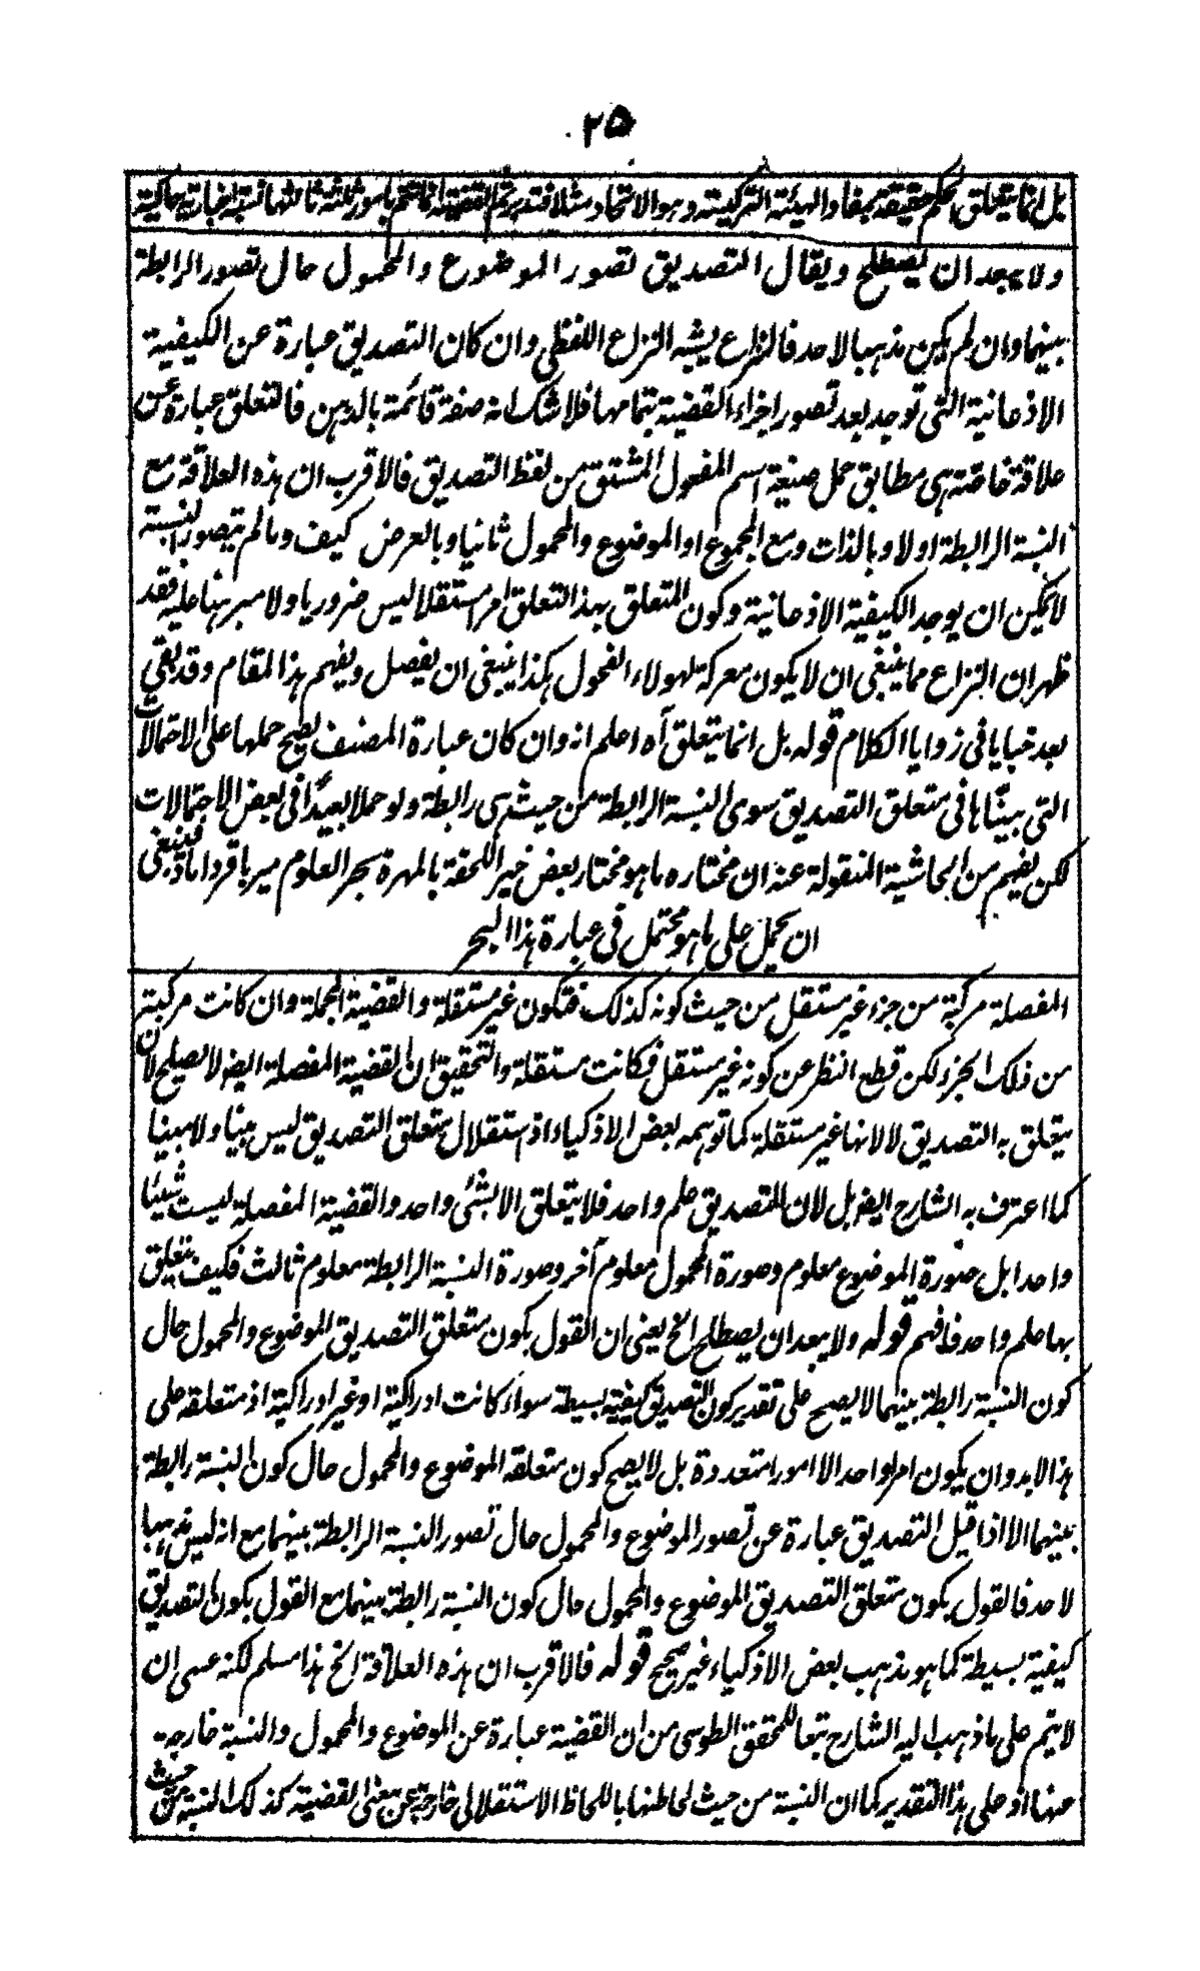 ٢٥
بل انما يتعلق الحكم حقيقة بمفاد الهيئة التركيبية وهو الاتحاد مثلا فتدبر ثم القضية انما تتم بامور ثلثة ثالثها نسبة اخبارية حاكية
ولا يبعد ان يصطلح ويقال التصديق تصور الموضوع والمحمول حال تصور الرابطة
بينهما وان لم يكن مذهبا لاحد فالنزاع يشبه النزاع اللفظي وان كان التصديق عبارة عن الكيفية
الاذعانية التي توجد بعد تصور اجزاء القضية بتمامها فلا شك انه صفة قائمة بالذهن فالتعلق عبارة عن
علاقة خاصة هي مطابق حمل صيغة اسم المفعول المشتق من لفظ التصديق فالاقرب ان هذه العلاقة مع
النسبة الرابطة اولا وبالذات ومع المجموع او الموضوع والمحمول ثانيا وبالعرض كيف وما لم يتصور النسبة
لا يمكن ان يوجد الكيفية الاذعانية وكون المتعلق بهذا التعلق امرا مستقلا ليس ضروريا ولا مبرهنا عليه فقد
ظهر ان النزاع مما ينبغي ان لا يكون معركة لهولاء الفحول هكذا ينبغي ان يفصل ويفهم هذا المقام وقد بقي
بعد خبايا في زوايا الكلام قوله بل انما يتعلق آه اعلم انه وان كان عبارة المصنف يصح حملها على الاحتمالات
التي بيناها في متعلق التصديق سوى النسبة الرابطة من حيث هي رابطة ولو حملا بعيدا في بعض الاحتمالات
لكن يفهم من الحاشية المنقولة عنه ان مختاره ما هو مختار بعض خير اللحقة بالمهرة بحر العلوم مير باقر داماد فينبغي
ان يحمل على ما هو محتمل في عبارة هذا البحر
المفصلة مركبة من جزء غير مستقل من حيث كونه كذلك فتكون غير مستقلة والقضية المجملة وان كانت مركبة
من ذلك الجزء لكن قطع النظر عن كونه غير مستقل فكانت مستقلة والتحقيق ان القضية المفصلة ايضا لا يصلح لان
يتعلق به التصديق لا لانها غير مستقلة كما توهمه بعض الاذكياء اذ استقلال متعلق التصديق ليس بينا ولا مبينا
كما اعترف به الشارح ايضا بل لان التصديق علم واحد فلا يتعلق الا بشئ واحد والقضية المفصلة ليست شيئا
واحدا بل صورة الموضوع معلوم وصورة المحمول معلوم آخر وصورة النسبة الرابطة معلوم ثالث فكيف يتعلق
بها علم واحد فافهم قوله ولا يبعد ان يصطلح الخ يعني ان القول بكون متعلق التصديق الموضوع والمحمول حال
كون النسبة رابطة بينهما لا يصح على تقدير كون التصديق كيفية بسيطة سواء كانت ادراكية او غير ادراكية اذ متعلقه على
هذا لابد وان يكون امرا واحدا لا امورا متعددة بل لا يصح كون متعلقه الموضوع والمحمول حال كون النسبة رابطة
بينهما الا اذا قيل التصديق عبارة عن تصور الموضوع والمحمول حال تصور النسبة الرابطة بينهما مع انه ليس مذهبا
لاحد فالقول بكون متعلق التصديق الموضوع والمحمول حال كون النسبة رابطة بينهما مع القول بكون التصديق
كيفية بسيطة كما هو مذهب بعض الاذكياء غير صحيح قوله فالاقرب ان هذه العلاقة الخ هذا مسلم لكنه عسى ان
لا يتم على ما ذهب اليه الشارح تبعا للمحقق الطوسي من ان القضية عبارة عن الموضوع والمحمول والنسبة خارجة
عنها اذ على هذا التقدير كما ان النسبة من حيث لحاظها باللحاظ الاستقلالي خارجة عن معنى القضية كذلك النسبة من حيث